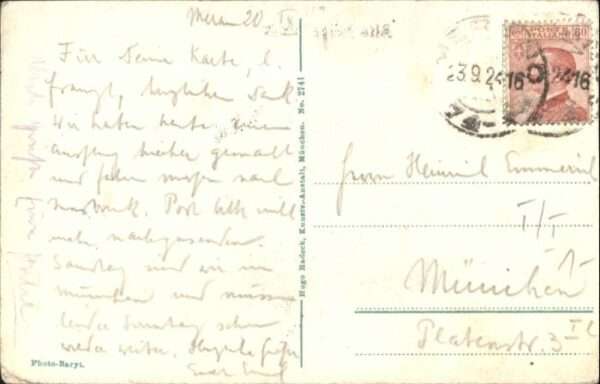 Meran 20 IX
Für Deine Karte, l.
Franzl, herzlichen Dank
Wir haben heute einen
Ausflug hieher gemacht
und fahren morgen nach
Innsbruck. Post bitte nicht
mehr nachzusenden.
Samstag sind wir in
München und müssen
leider Sonntag schon
wieder weiter. Herzliche Grüße
Euer Emil
Photo-Baryt.
Hugo Radeck, Kunstv.-Anstalt, München. No. 2741
23.9.24 16
60
Herrn Heinrich Emmerich
I/I
München
Platenstr. 3